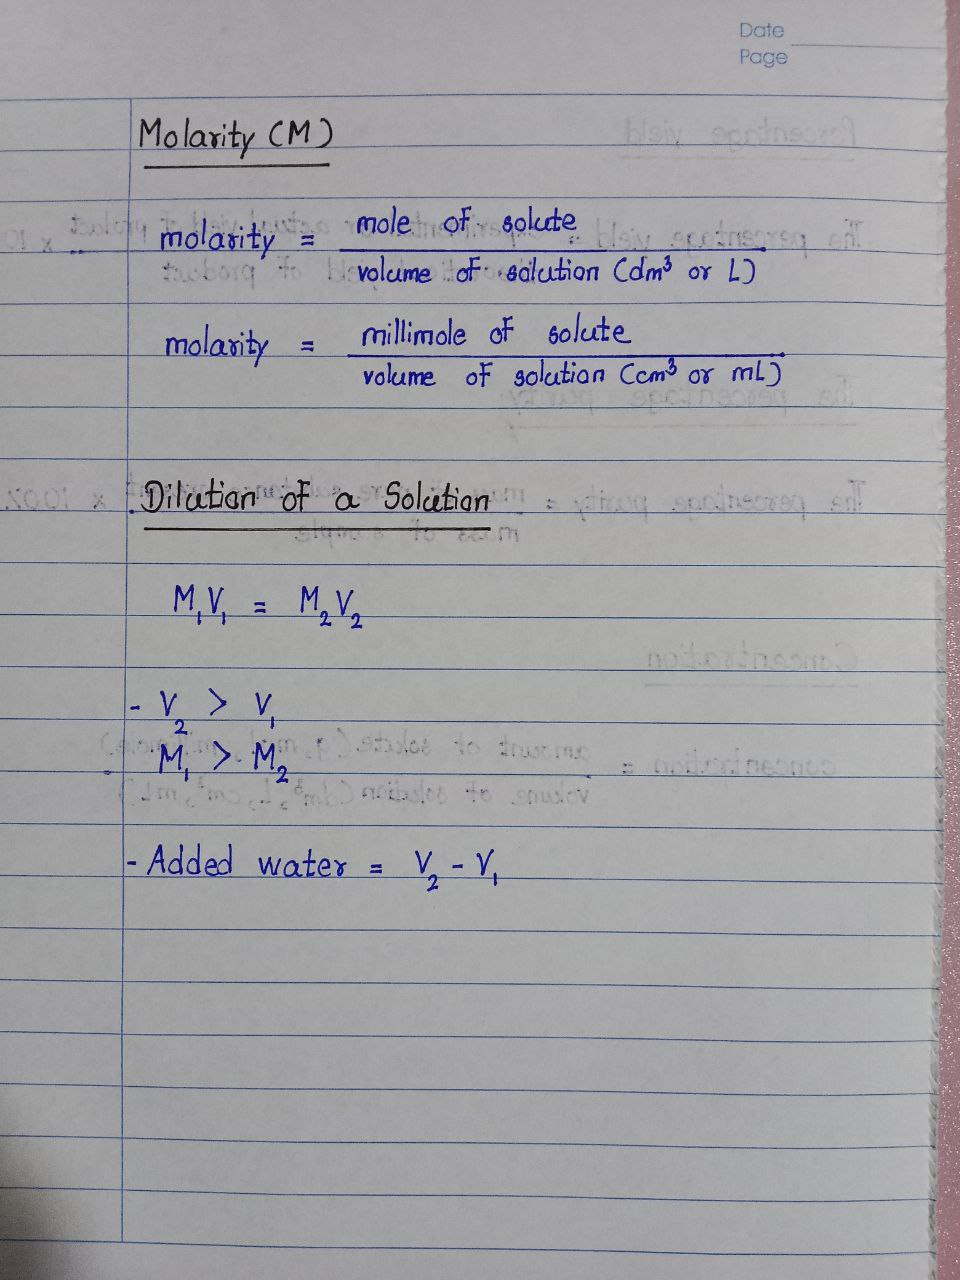 Date
Page
Molarity (M)
molarity = mole of solute / volume of solution (dm³ or L)
molarity = millimole of solute / volume of solution (cm³ or mL)
Dilution of a Solution
M₁V₁ = M₂V₂
- V₂ > V₁
M₁ > M₂
- Added water = V₂ - V₁